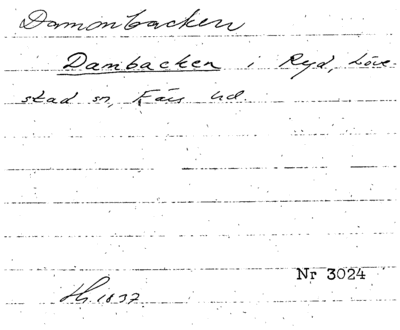 Damonbacken
Dambacken i Ryd, Löve-
stad sn, Färs hd.
Nr 3024
Hg 1837